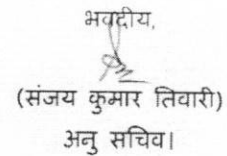 भवदीय,
(संजय कुमार तिवारी)
अनु सचिव।